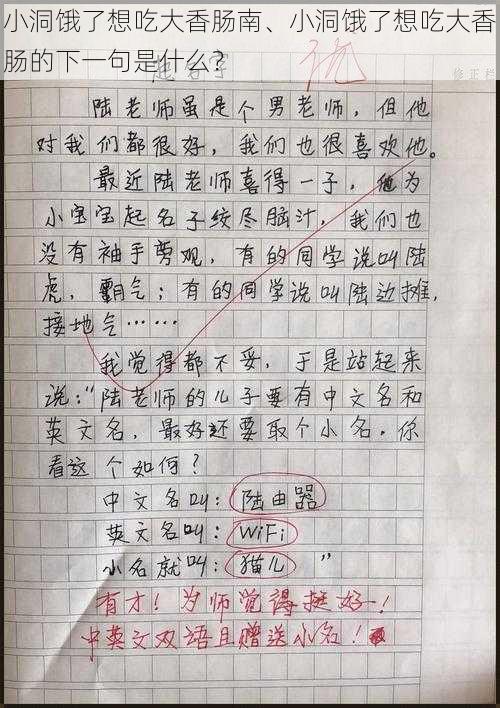 小洞饿了想吃大香肠南、小洞饿了想吃大香
肠的下一句是什么？
修正栏
陆老师虽是个男老师，但他
对我们都很好，我们也很喜欢他。
最近陆老师喜得一子，他为
小宝宝起名子绞尽脑汁，我们也
没有袖手旁观，有的同学说叫陆
虎，霸气；有的同学说叫陆边摊，
接地气……
我觉得都不妥，于是站起来
说：“陆老师的儿子要有中文名和
英文名，最好还要取个小名。你
看这个如何？
中文名叫：陆由器
英文名叫：WiFi
小名就叫：猫儿”
有才！为师觉得挺好！
中英文双语且赠送小名！